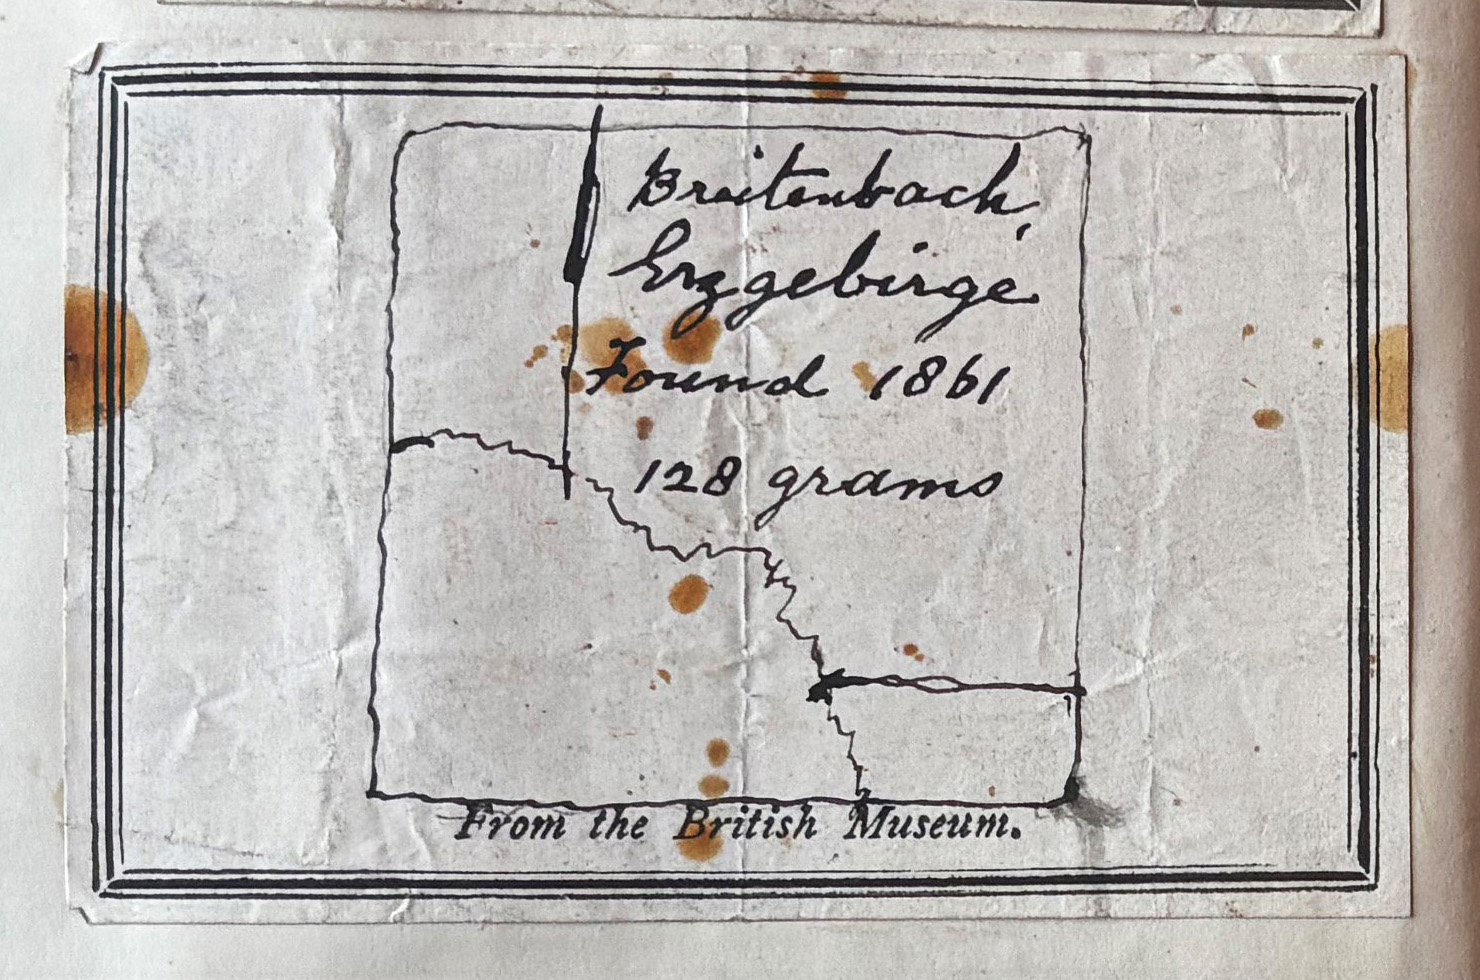 Breitenbach,
Erzgebirge
Found 1861
128 grams
From the British Museum.